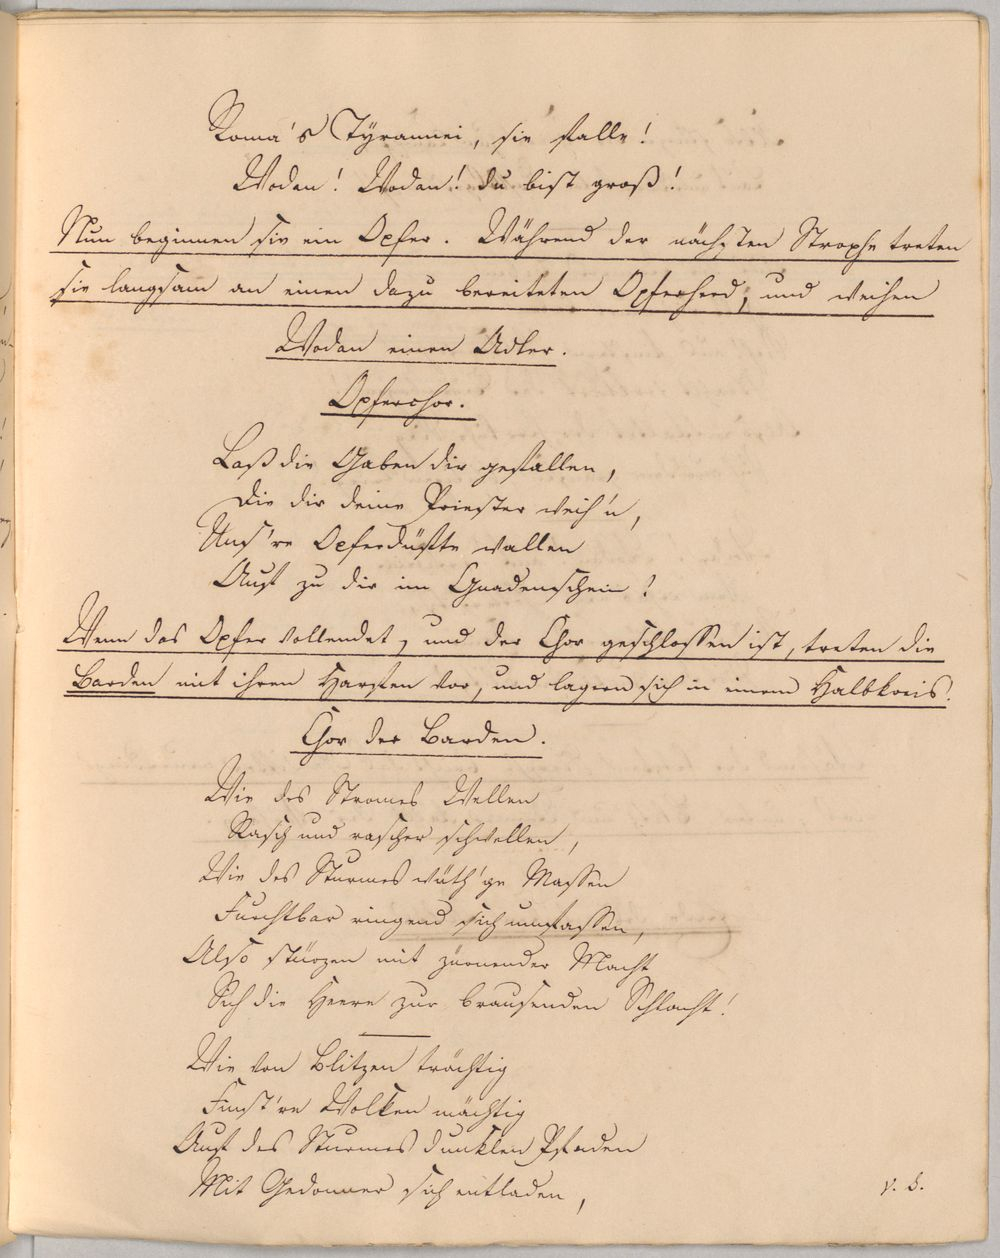 Roma's Tÿrannei, sie falle!
Wodan! Wodan! du bist groß!
Nun beginnen sie ein Opfer. Während der nächsten Strophe treten
sie langsam an einen dazu bereiteten Opferherd, und weihen
Wodan einen Adler.
Opferchor.
Laß die Gaben dir gefallen,
Die dir deine Priester weih'n,
Uns're Opferdüfte wallen
Auf zu dir im Gnadenschein!
Wenn das Opfer vollendet, und der Chor geschlossen ist, treten die
Barden mit ihren Harfen vor, und lagern sich in einem Halbkreis.
Chor der Barden.
Wie des Stromes Wellen
Rasch und rascher schwellen,
Wie des Sturmes wüth'ge Massen
Furchtbar ringend sich umfassen,
Also stürzen mit zürnender Macht
Sich die Heere zur brausenden Schlacht!
Wie von Blitzen trächtig
Finst're Wolken mächtig
Auf des Sturmes dunklen Pfaden
Mit Gedonner sich entladen,
v. S.